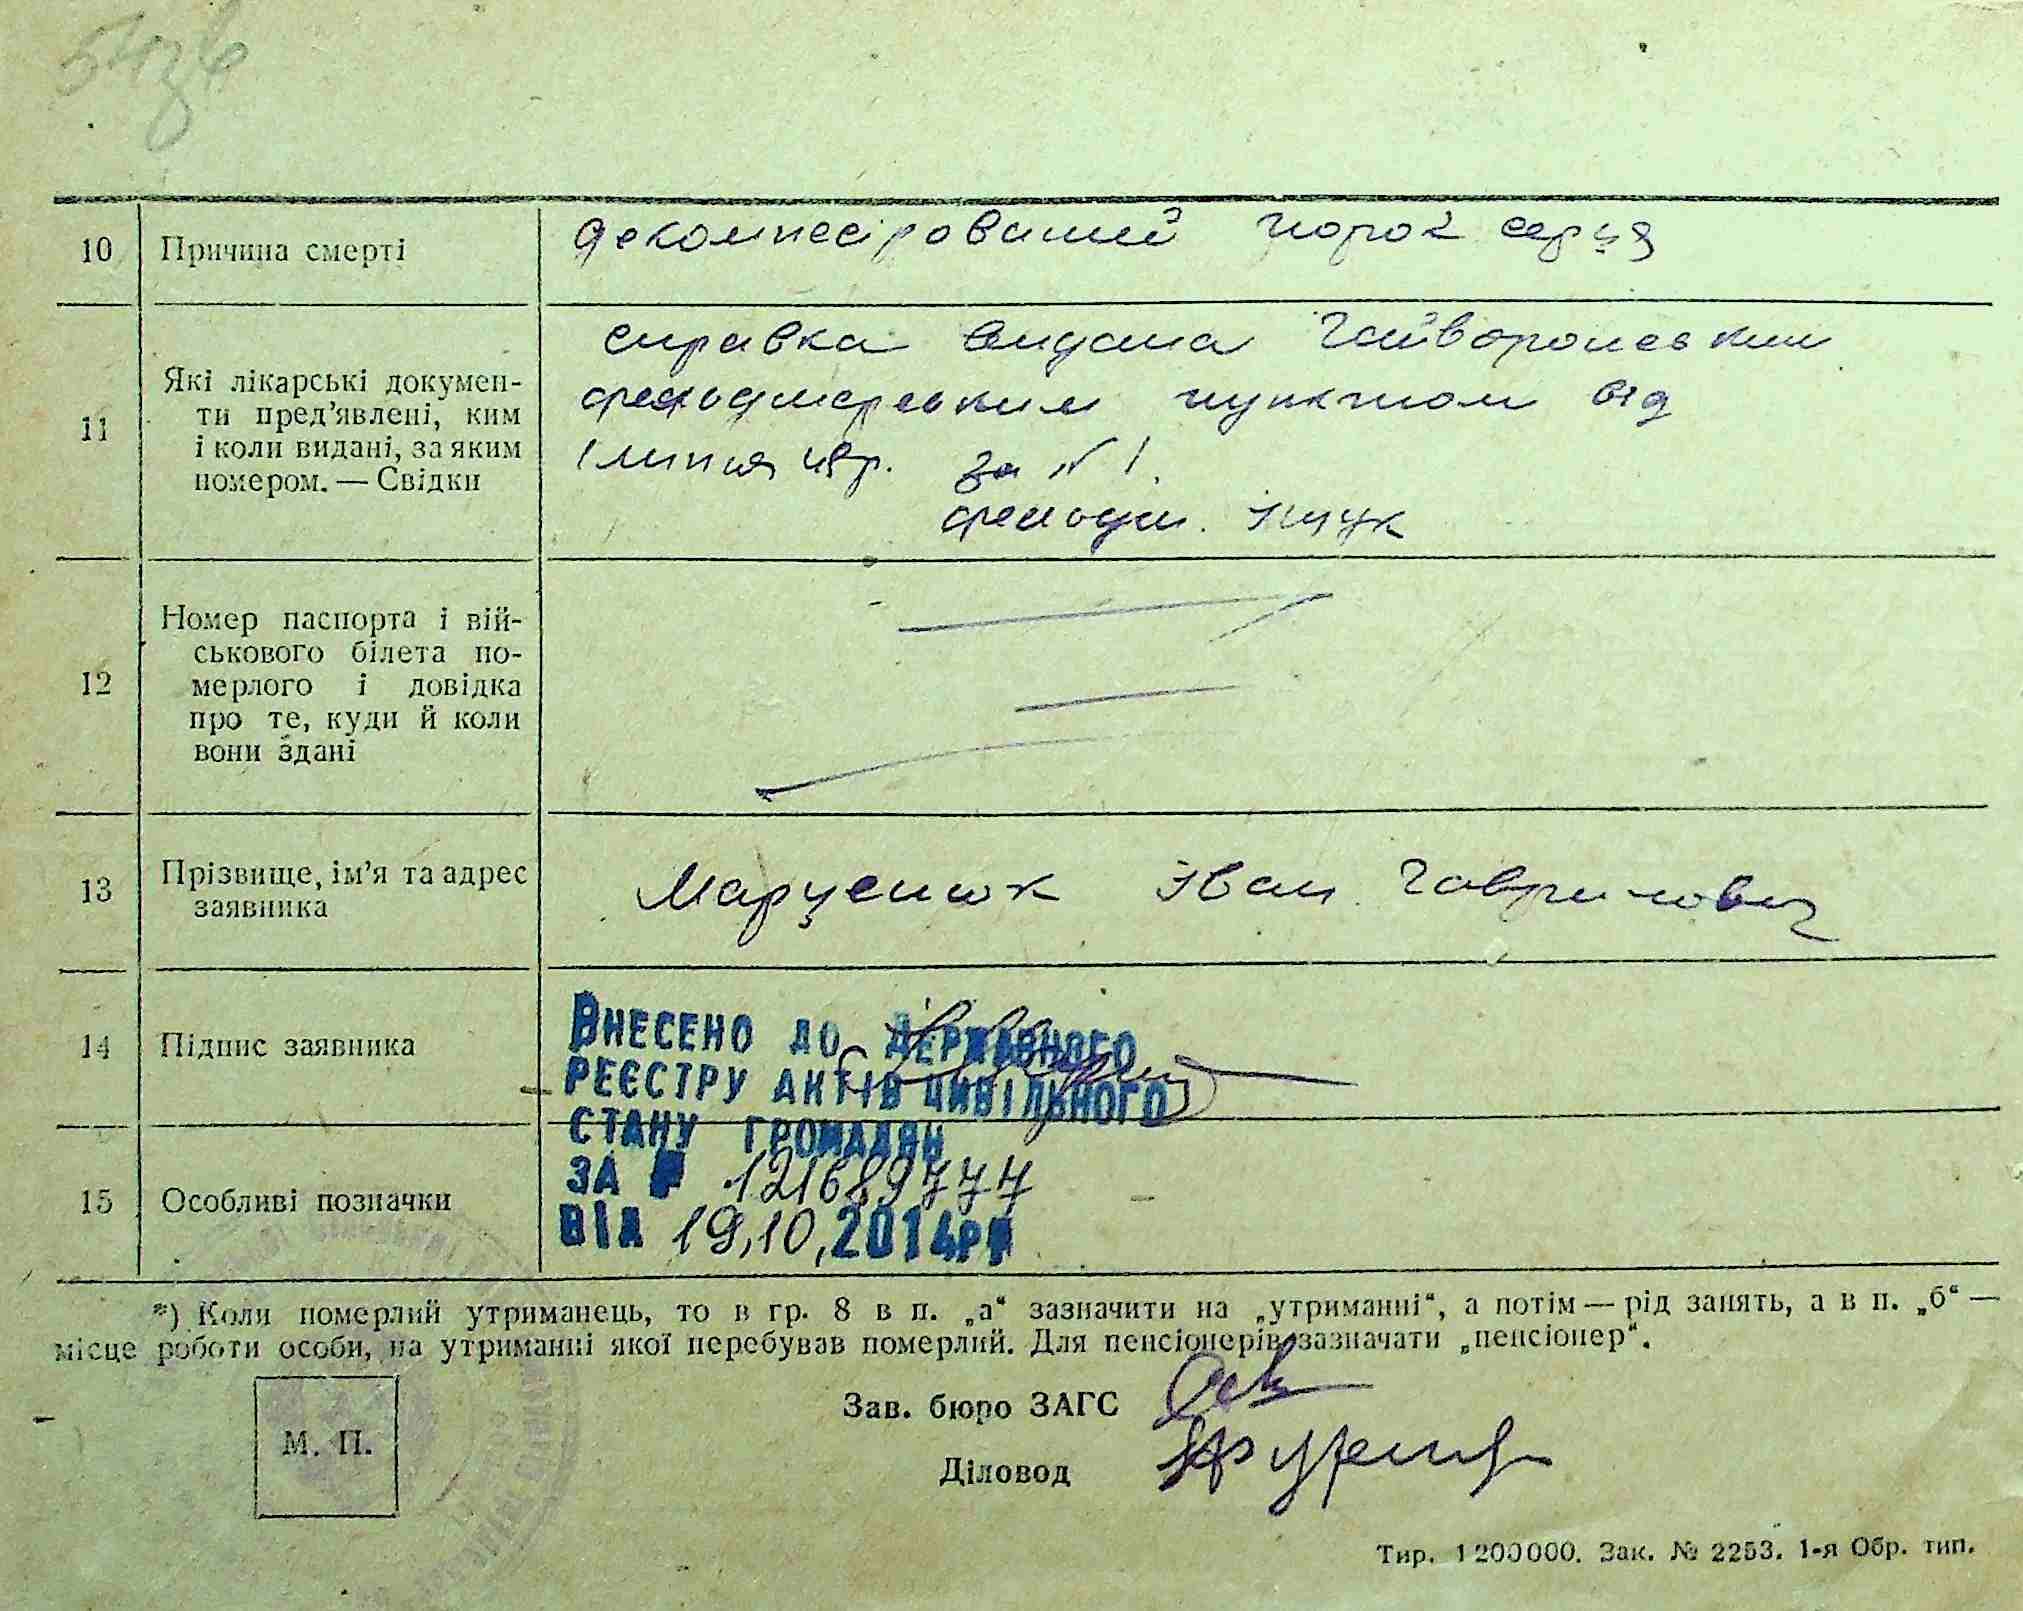 10 Причина смерті
декомпесірований порок серця
11 Які лікарські докумен-
ти пред’явлені, ким
і коли видані, за яким
номером. — Свідки
справка видана Гайворонським
фельдшерським пунктом від
1 липня 48р. за № 1.
фельдш. Іщук
12 Номер паспорта і вій-
ськового білета по-
мерлого і довідка
про те, куди й коли
вони здані
13 Прізвище, ім’я та адрес
заявника
Марценюк Іван Гаврилович
14 Підпис заявника
15 Особливі позначки
Внесено до Державного
реєстру актів цивільного
стану громадян
за № 121689777
від 19,10,2014р
*) Коли померлий утриманець, то в гр. 8 в п. „а“ зазначити на „утриманні“, а потім — рід занять, а в п. „б“ —
місце роботи особи, на утриманні якої перебував померлий. Для пенсіонерів зазначати „пенсіонер“.
Зав. бюро ЗАГС
М. П.
Діловод
Тир. 1200000. Зак. № 2253. 1-я Обр. тип.